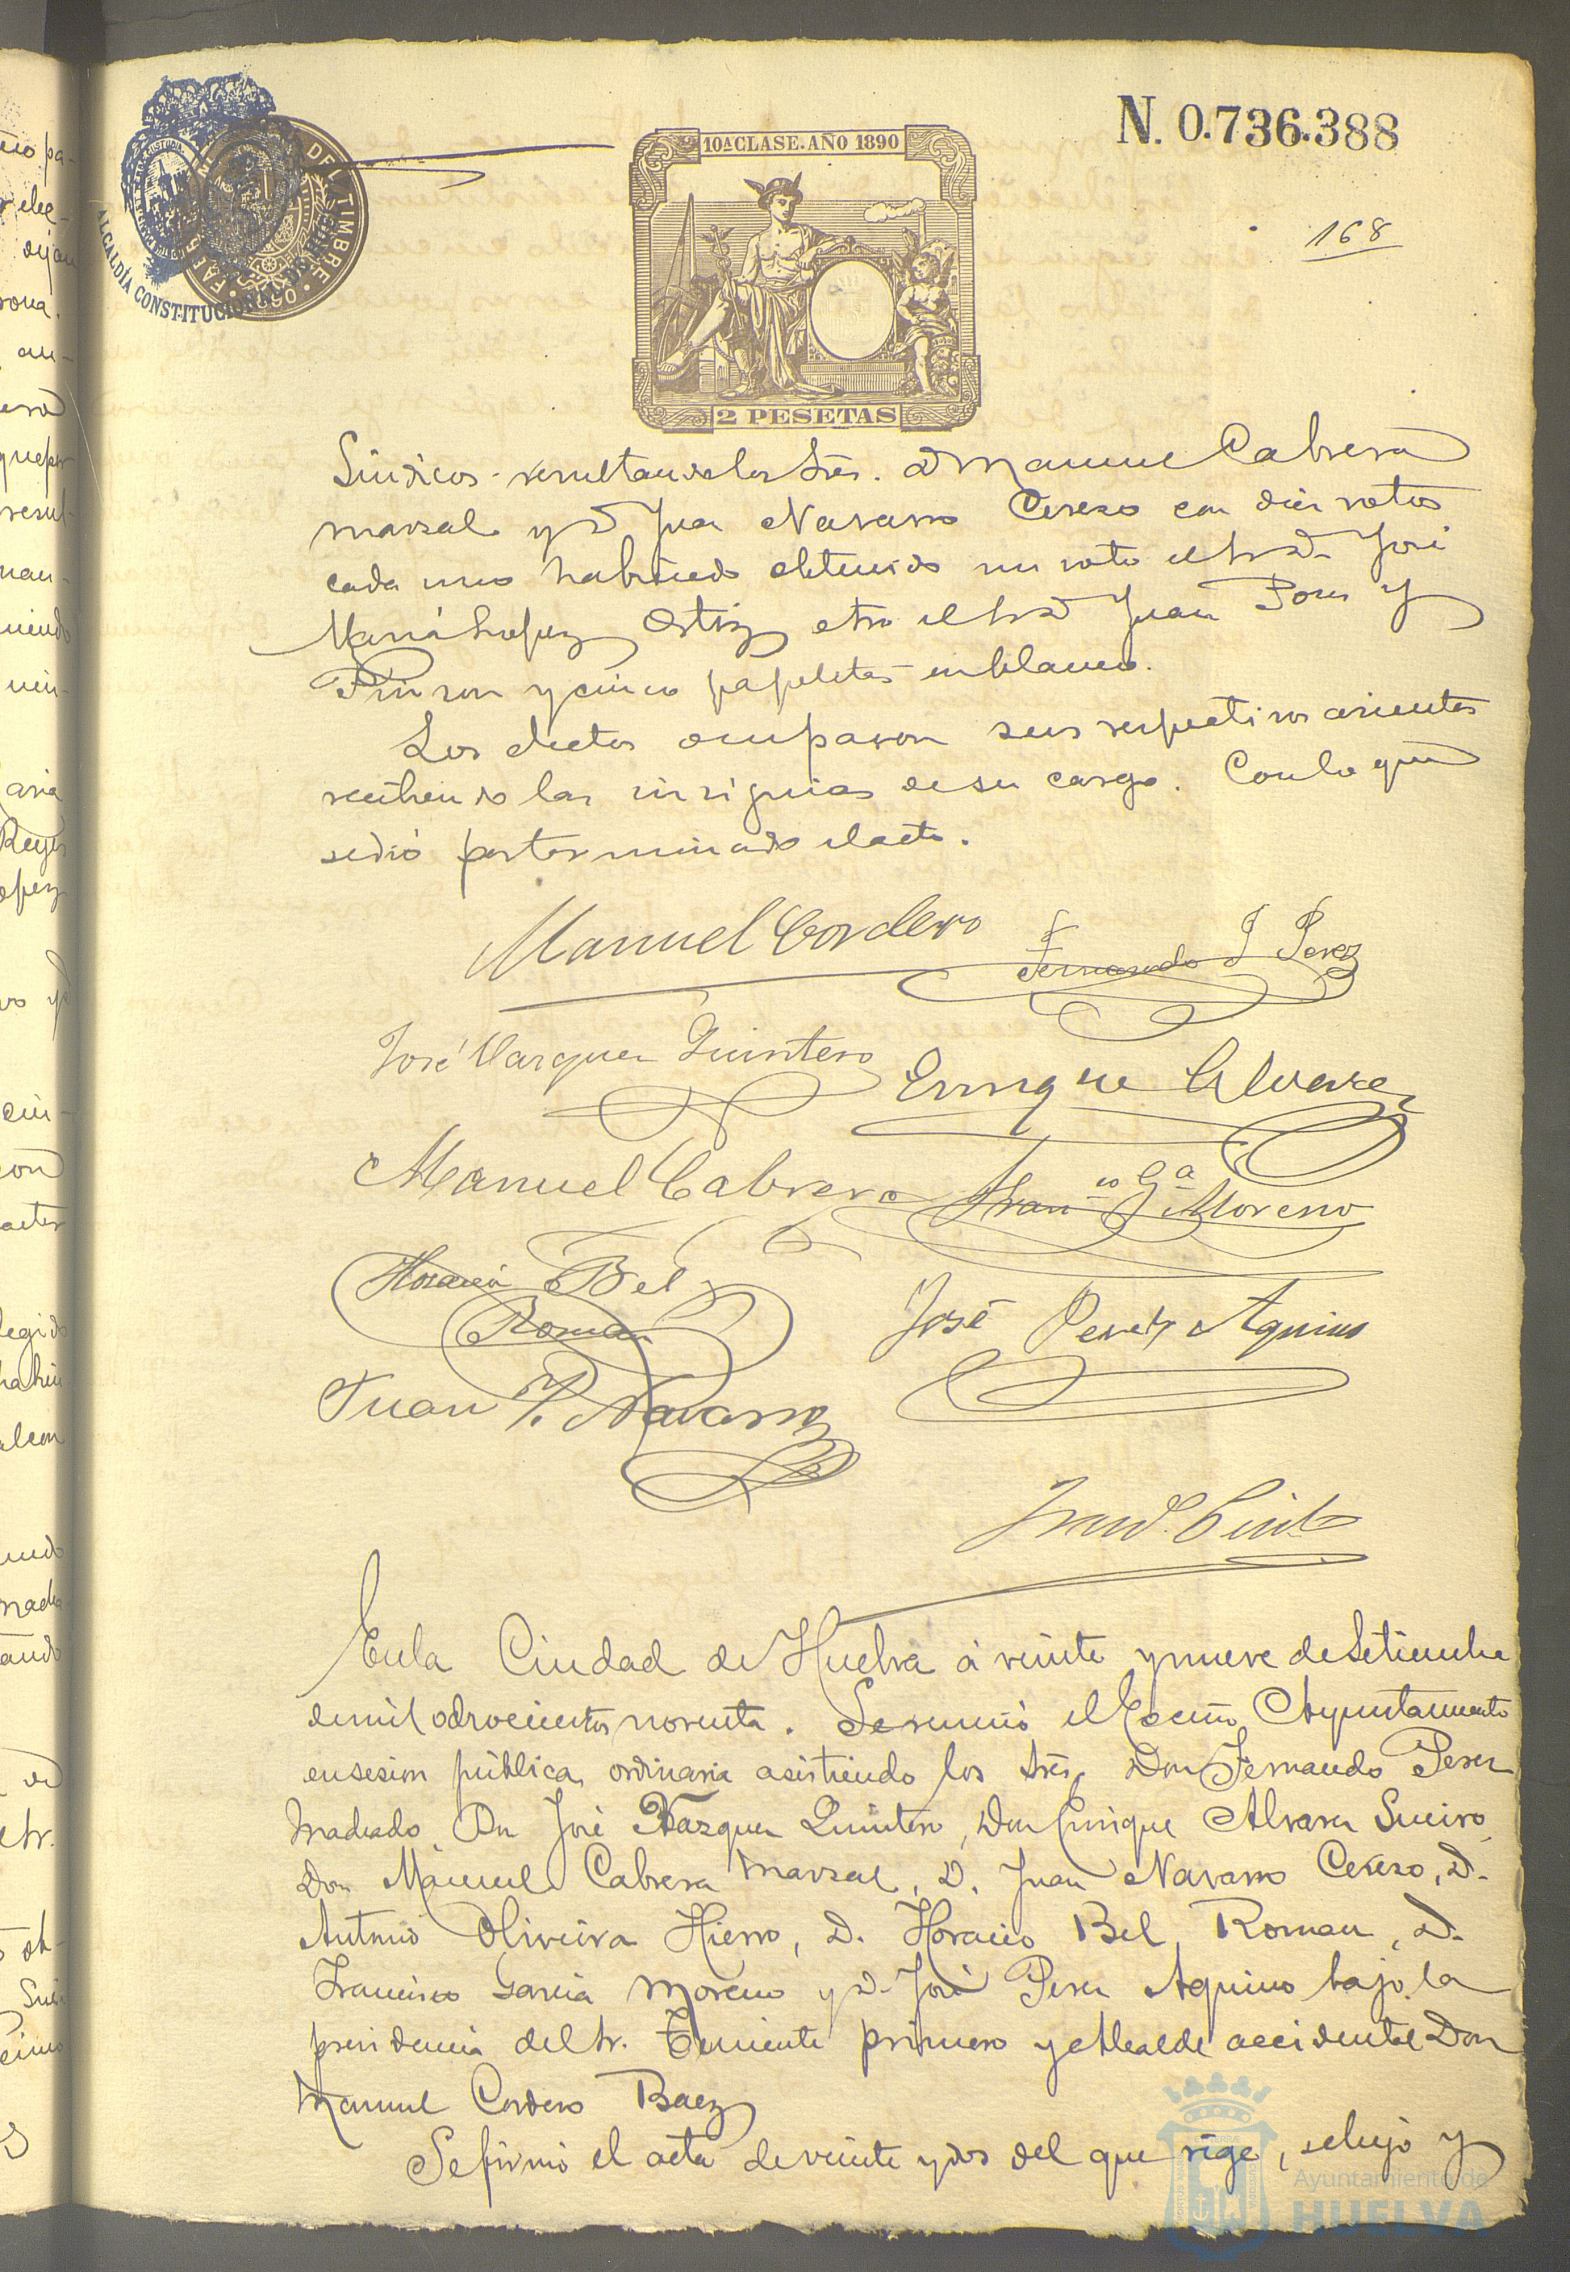 N. 0.736.388
10ª CLASE. AÑO 1890
168
ALCALDÍA CONSTITUCIONAL
DEL TIMBRE
2 PESETAS
Sindicos resultando los Sres. D Manuel Cabrera
Marzal y D Juan Navarro Cerezo con diez votos
cada uno habiendo obtenido un voto el Sr D. José
Maria Lopez Ortiz otro el Sr D Juan Pons y
Pinzon y cinco papeletas en blanco.
Los electos ocuparon sus respectivos asientos
recibiendo las insignias de su cargo. Con lo que
se dió por terminado el acto.
Manuel Cordero
Fernando J Perez
José Vazquez Quintero
Enrique Alvarez
Manuel Cabrera
Fran.co G.a Moreno
Horacio Bel
Roman
José Perez Aquino
Juan P. Navarro
En la Ciudad de Huelva á veinte y nueve de Setiembre
de mil ochocientos noventa. Se reunió el Excmo Ayuntamiento
en sesion pública ordinaria asistiendo los Sres. Don Fernando Perez
Machado, Don José Vazquez Quintero, Don Enrique Alvarez Sueiro,
Don Manuel Cabrera Marzal, D. Juan Navarro Cerezo, D.
Antonio Oliveira Hierro, D. Horacio Bel Roman, D.
Francisco Garcia Moreno y D. José Perez Aquino bajo la
presidencia del Sr. Teniente primero y Alcalde accidental Don
Manuel Cordero Baez
Se firmó el acta de veinte y dos del que rige, se leyó y
Ayuntamiento de
HUELVA